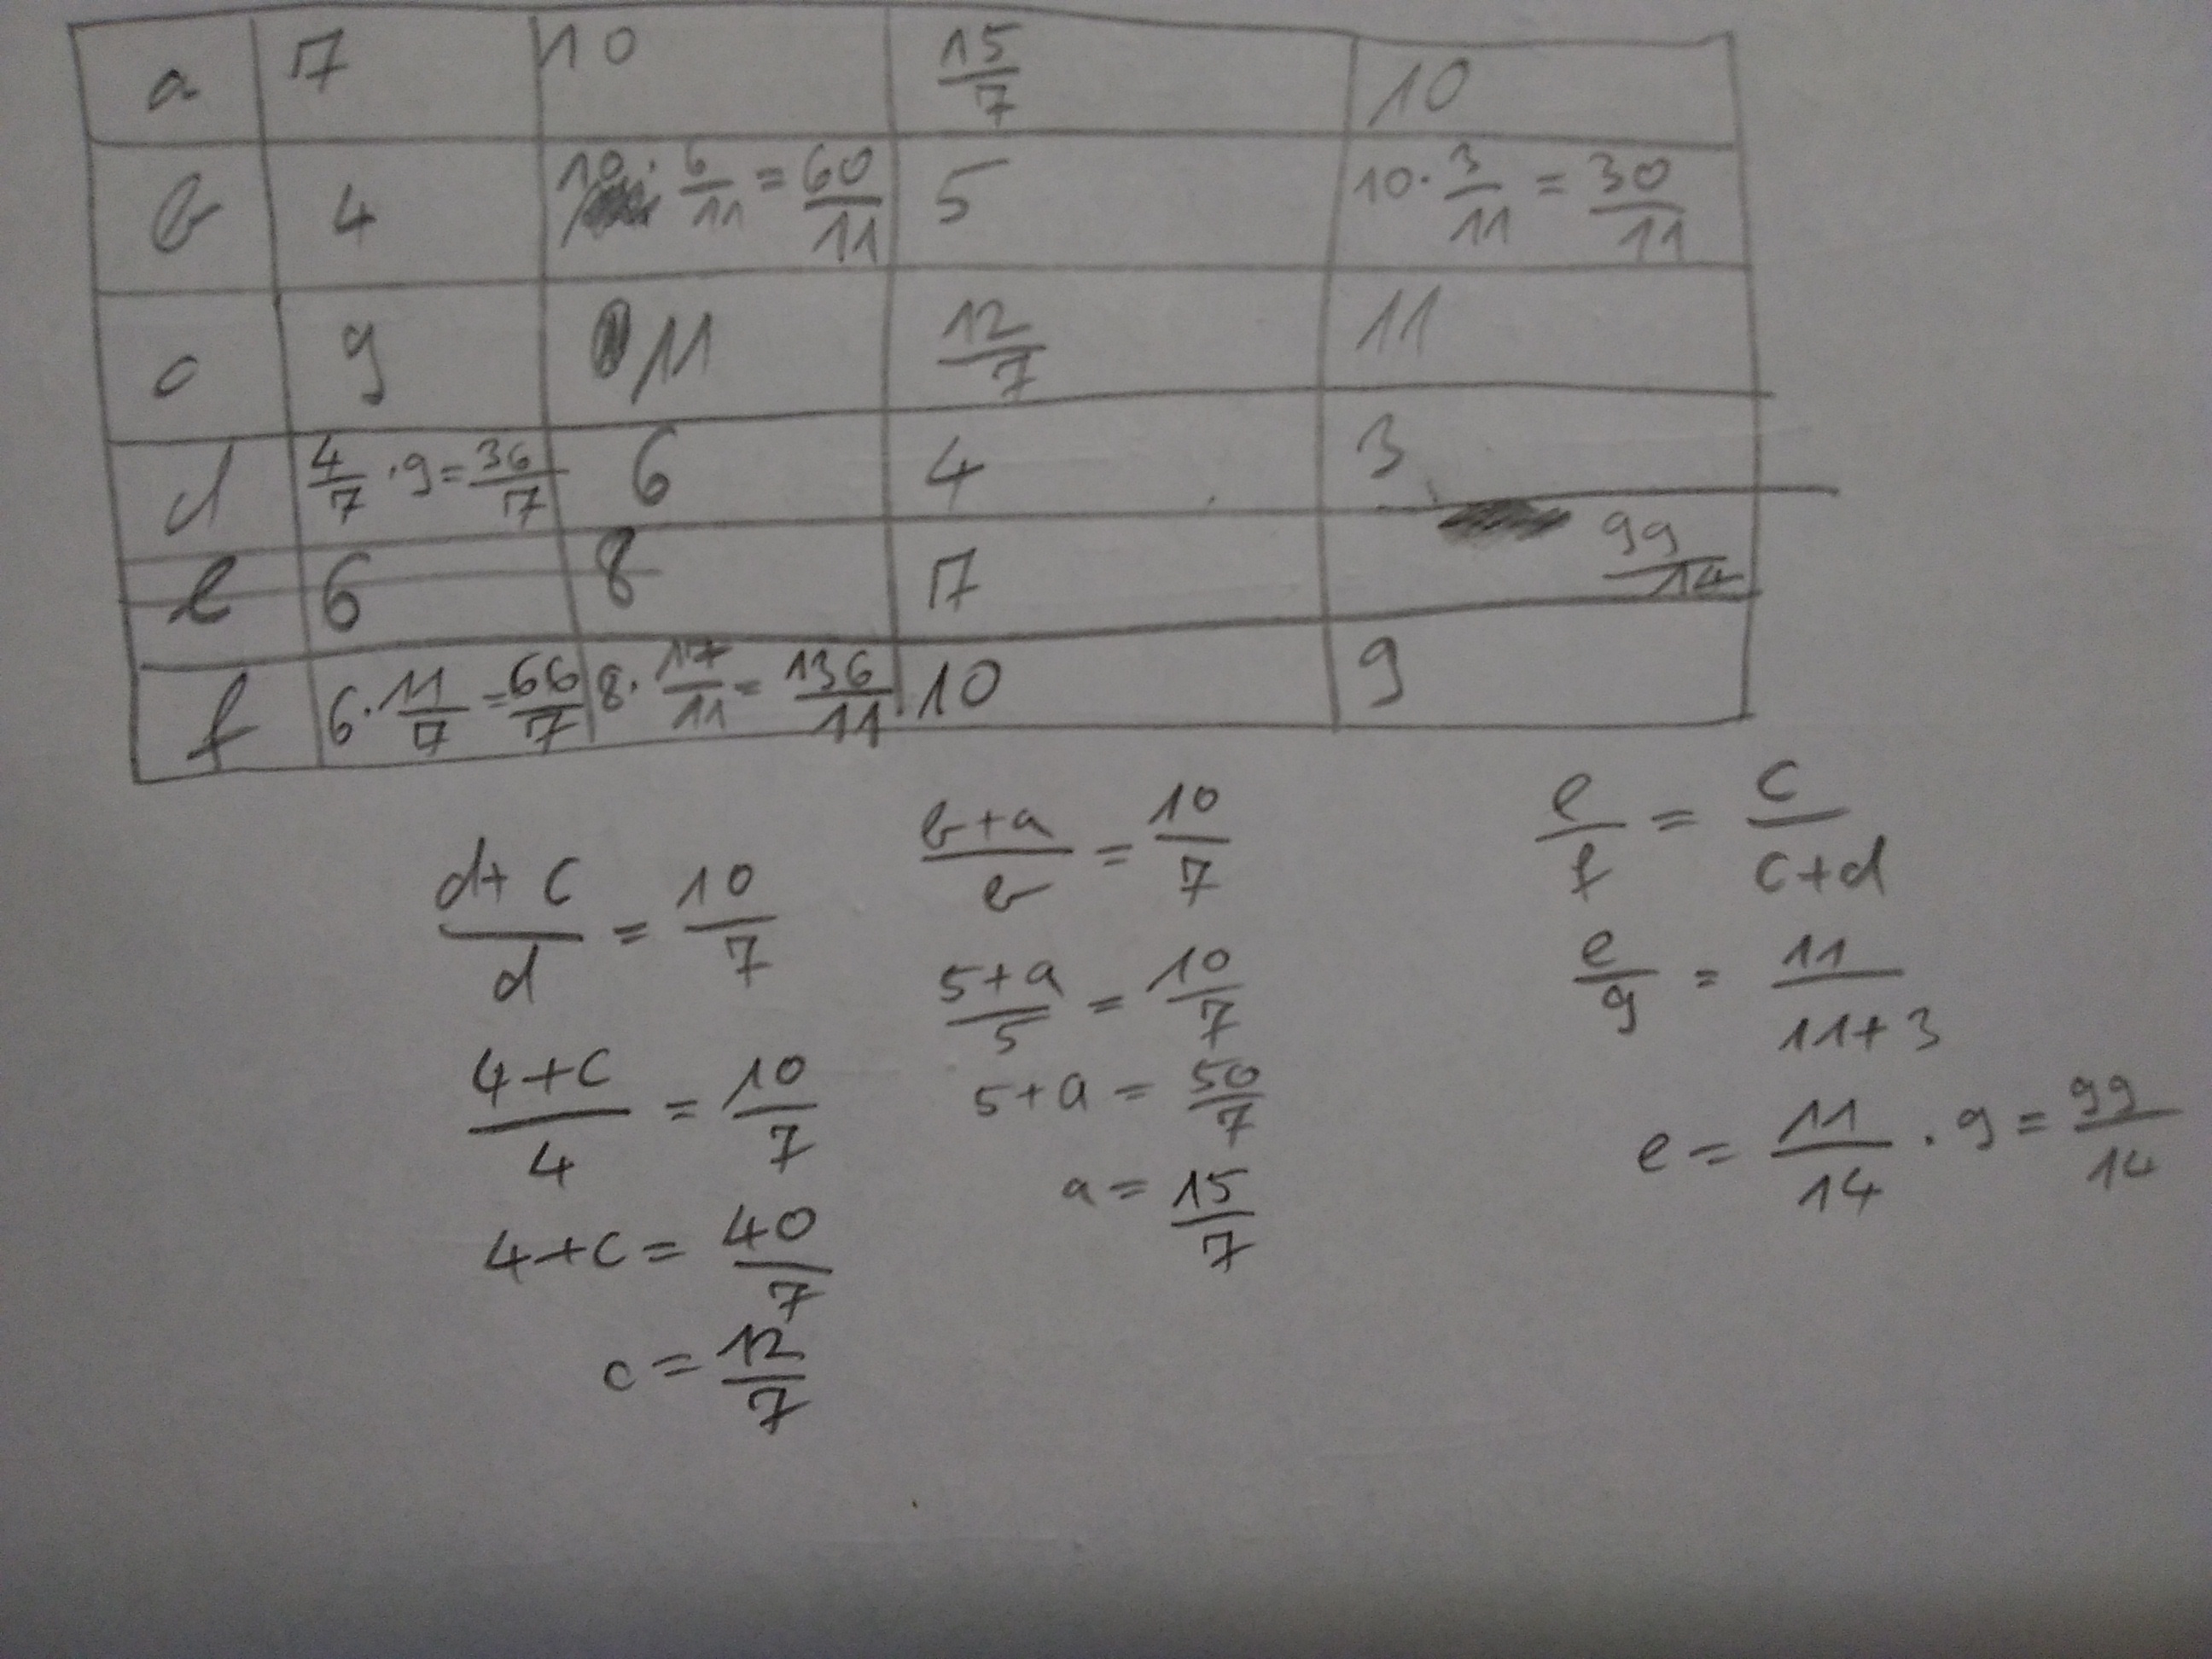 a 7 10 15/7 10
b 4 10 · 6/11 = 60/11 5 10 · 3/11 = 30/11
c 9 11 12/7 11
d 4/7 · 9 = 36/7 6 4 3
e 6 8 7 99/14
f 6 · 11/7 = 66/7 8 · 17/11 = 136/11 10 9
(d + c)/d = 10/7
(4 + c)/4 = 10/7
4 + c = 40/7
c = 12/7
(b + a)/b = 10/7
(5 + a)/5 = 10/7
5 + a = 50/7
a = 15/7
e/f = c/(c + d)
e/9 = 11/(11 + 3)
e = 11/14 · 9 = 99/14